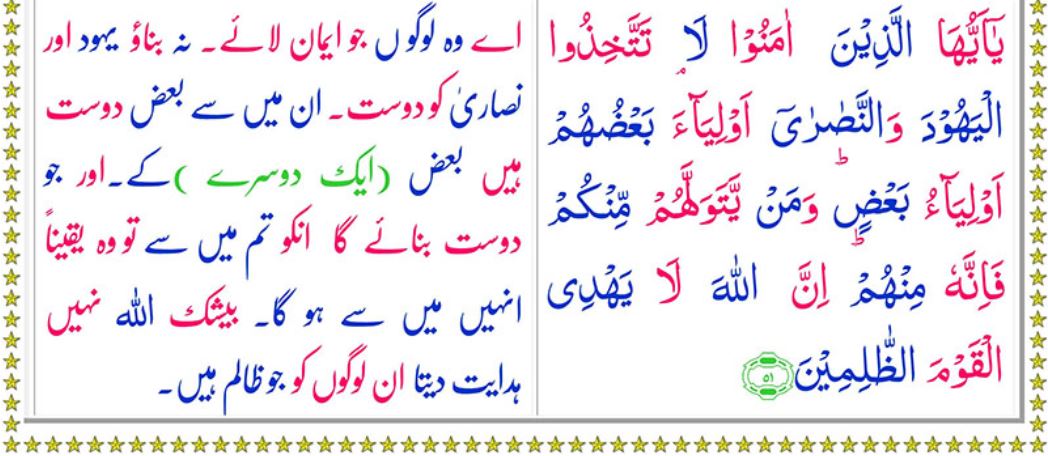 یٰۤاَیُّهَا الَّذِیْنَ اٰمَنُوْا لَا تَتَّخِذُوا
الْیَهُوْدَ وَالنَّصٰرٰۤی اَوْلِیَآءَ بَعْضُهُمْ
اَوْلِیَآءُ بَعْضٍ وَمَنْ یَّتَوَلَّهُمْ مِّنْكُمْ
فَاِنَّهٗ مِنْهُمْ اِنَّ اللّٰهَ لَا یَهْدِی
الْقَوْمَ الظّٰلِمِیْنَ ۵۱
اے وہ لوگو ں جو ایمان لائے۔ نہ بناؤ یہود اور
نصاریٰ کو دوست۔ ان میں سے بعض دوست
ہیں بعض (ایک دوسرے )کے۔اور جو
دوست بنائے گا انکو تم میں سے تو وہ یقیناً
انہیں میں سے ہو گا۔ بیشک اللہ نہیں
ہدایت دیتا ان لوگوں کو جو ظالم ہیں۔